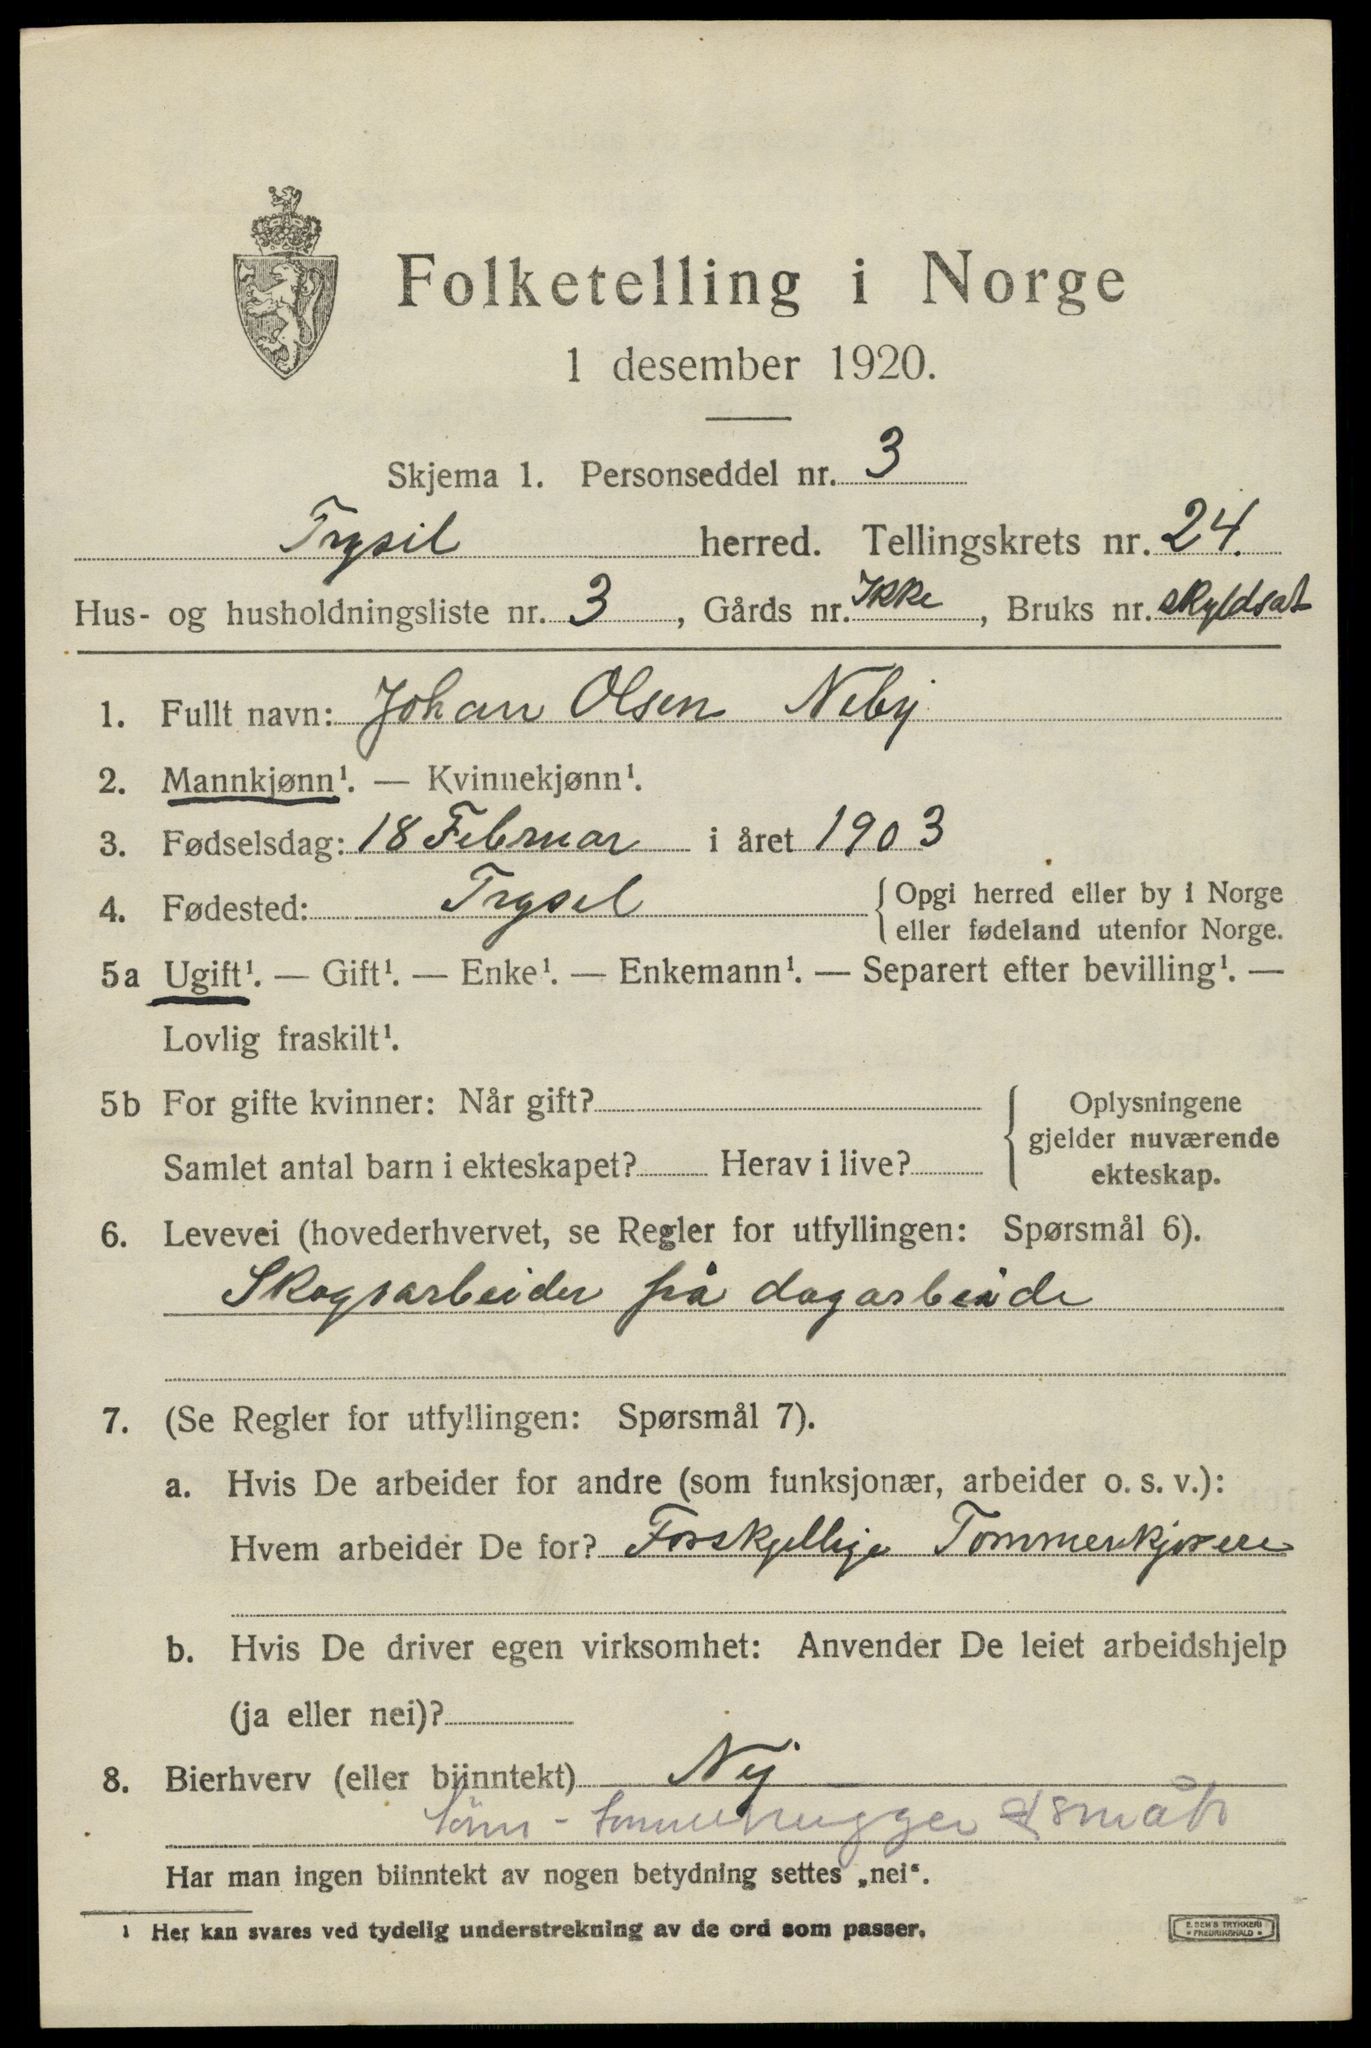 Folketelling i Norge
1 desember 1920.
Skjema 1. Personseddel nr. 3
Trysil herred. Tellingskrets nr. 24.
Hus- og husholdningsliste nr. 3, Gårds nr. Ikke, Bruks nr. skyldsat
1. Fullt navn: Johan Olsen Neby
2. Mannkjønn¹. — Kvinnekjønn¹.
3. Fødselsdag: 18 Februar i året 1903
4. Fødested: Trysil { Opgi herred eller by i Norge
eller fødeland utenfor Norge.
5a Ugift¹. — Gift¹. — Enke¹. — Enkemann¹. — Separert efter bevilling¹. —
Lovlig fraskilt¹.
5b For gifte kvinner: Når gift? { Oplysningene
gjelder nuværende
Samlet antal barn i ekteskapet? Herav i live?
ekteskap.
6. Levevei (hovederhvervet, se Regler for utfyllingen: Spørsmål 6).
Skogsarbeider på dagarbeide
7. (Se Regler for utfyllingen: Spørsmål 7).
a. Hvis De arbeider for andre (som funksjonær, arbeider o. s. v.):
Hvem arbeider De for? Forskjellige Tommerkjørere
b. Hvis De driver egen virksomhet: Anvender De leiet arbeidshjelp
(ja eller nei)?
8. Bierhverv (eller biinntekt) Nej
Har man ingen biinntekt av nogen betydning settes „nei“.
¹ Her kan svares ved tydelig understrekning av de ord som passer.
E. SEM'S TRYKKERI
FREDRIKSHALD